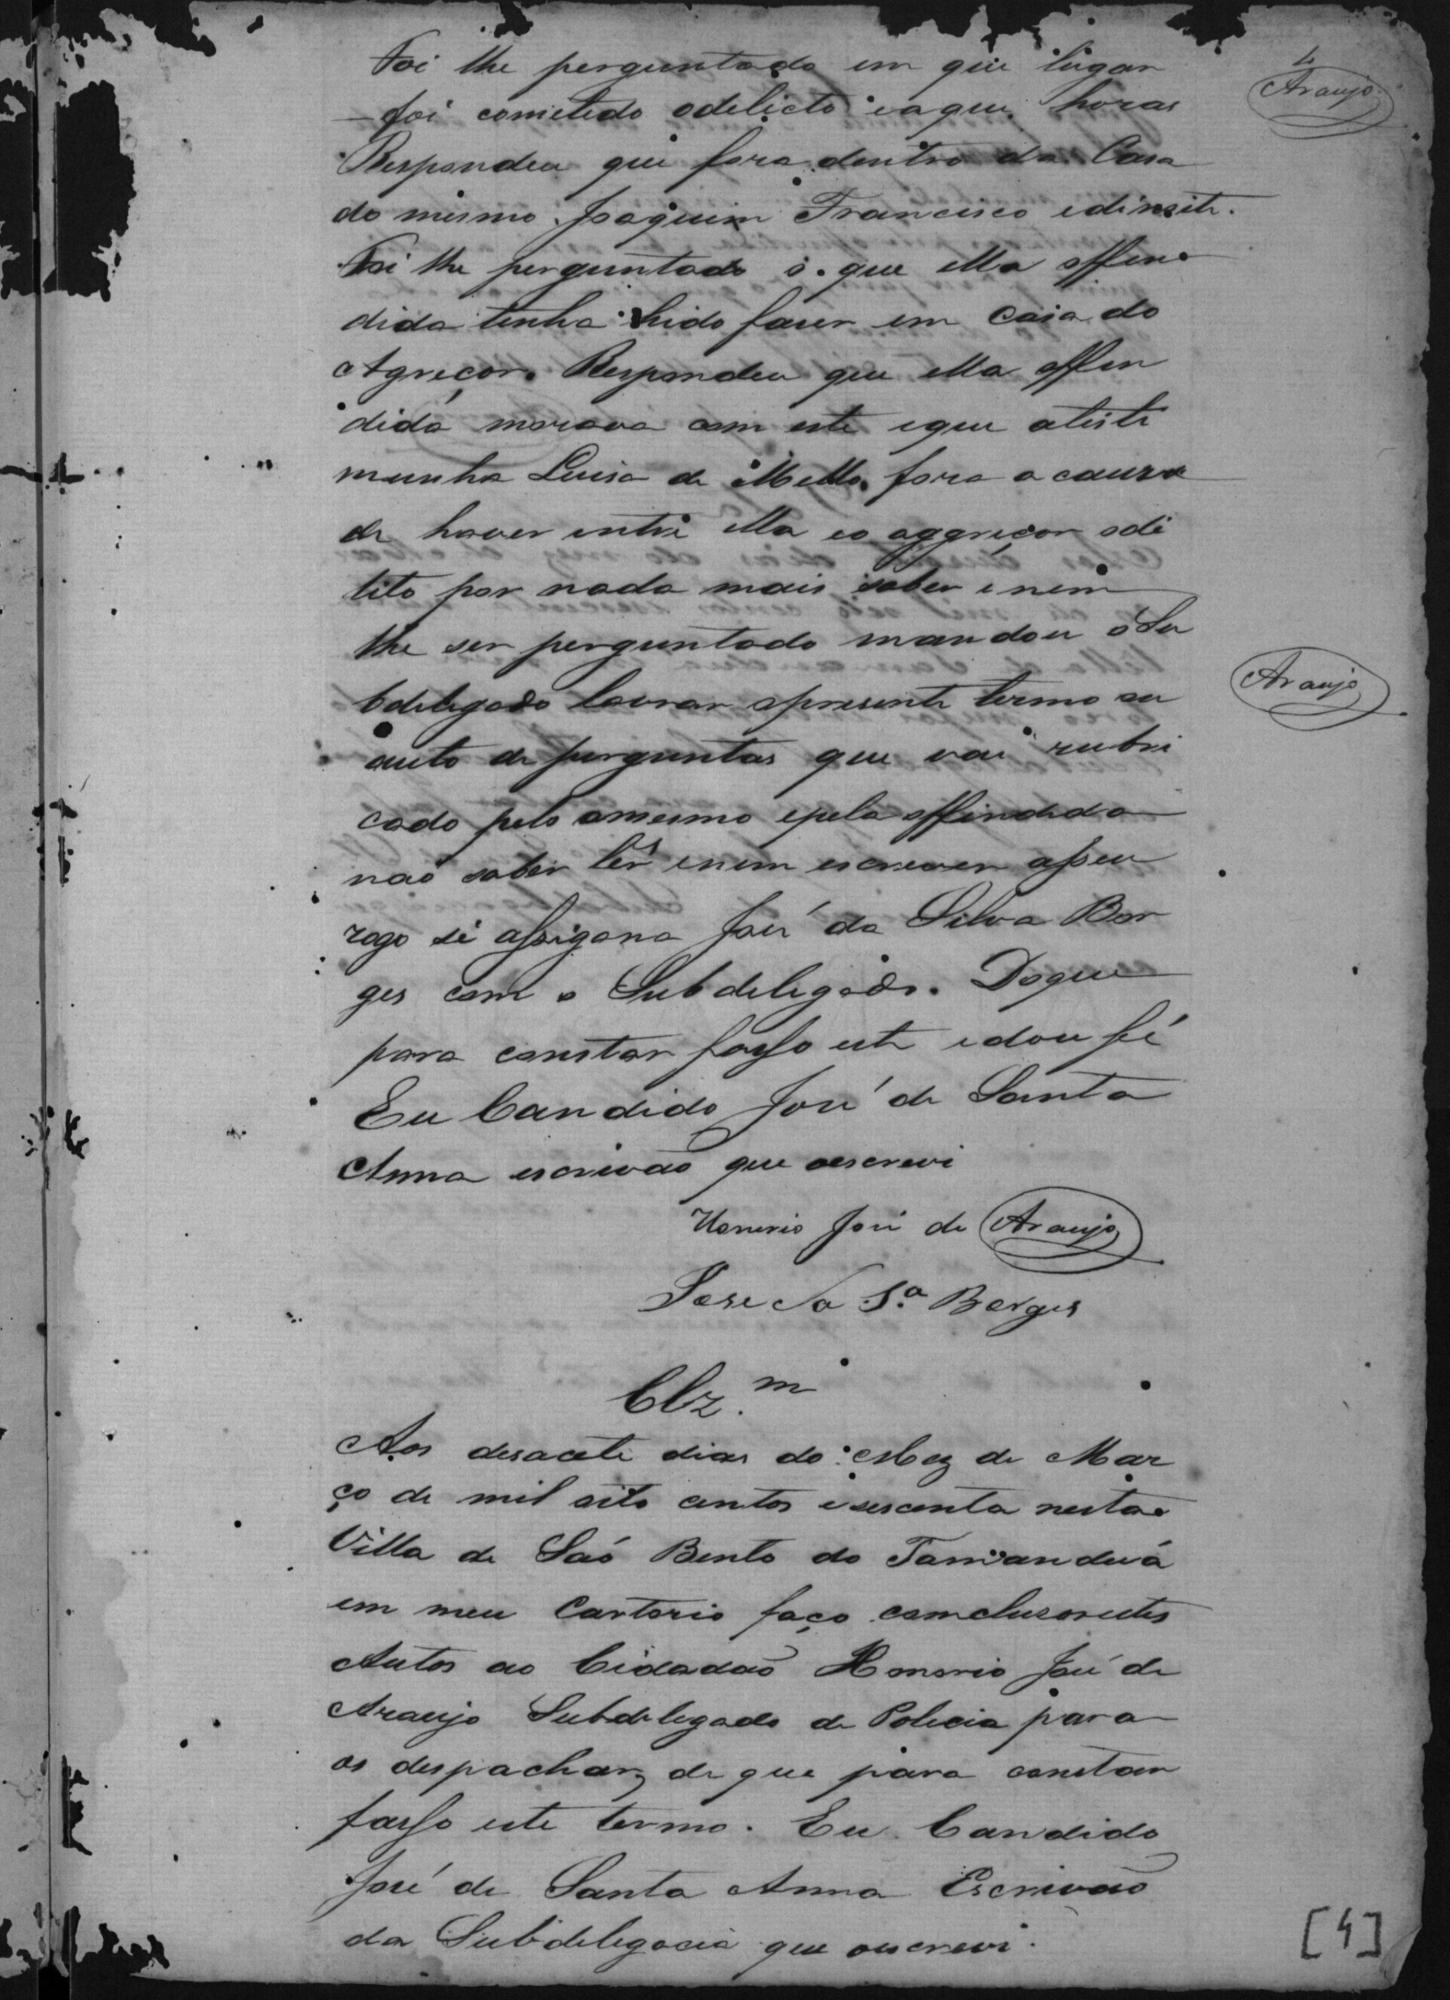 4
Araujo
Foi lhe perguntado em que lugar
foi cometido odelicto eaque horas
Respondeu que fora dentro da Casa
do mesmo Joaquim Francisco
Foi lhe perguntado o que ella offen
dida tinha hido faser em casa do
Agreçor. Respondeu que ella offen
dida morava com este eque ateste
munha Luisa de Mello fora a causa
de haver entre ella eo aggreçor odi
lito por nada mais saber enem
lhe ser perguntado mandou oSu
bdelegado lavrar opresente termo ou
Araujo
auto de perguntas que vai rubri
cado pelo mesmo epela offendida
não saber ler enem escrever aseu
rogo se assigana José da Silva Bor
ges com o Subdelegado. Doque
para constar fasso este edou fé
Eu Candido José de Santa
Anna escrivão que oescrevi
Honorio José de Araujo
Jose da S.a Borges
Clz.m
Aos desacete dias do Mez de Mar
ço de mil oito centos esescenta nesta
Villa de Saó Bento do Tamanduá
em meu Cartorio faço comcluzosestes
Autos ao Cidadão Honorio José de
Araujo Subdelegado de Policia para
os despachar, de que para constar
fasso este termo. Eu Candido
José de Santa Anna Escrivão
da Subdelegacia que oescrevi.
[4]